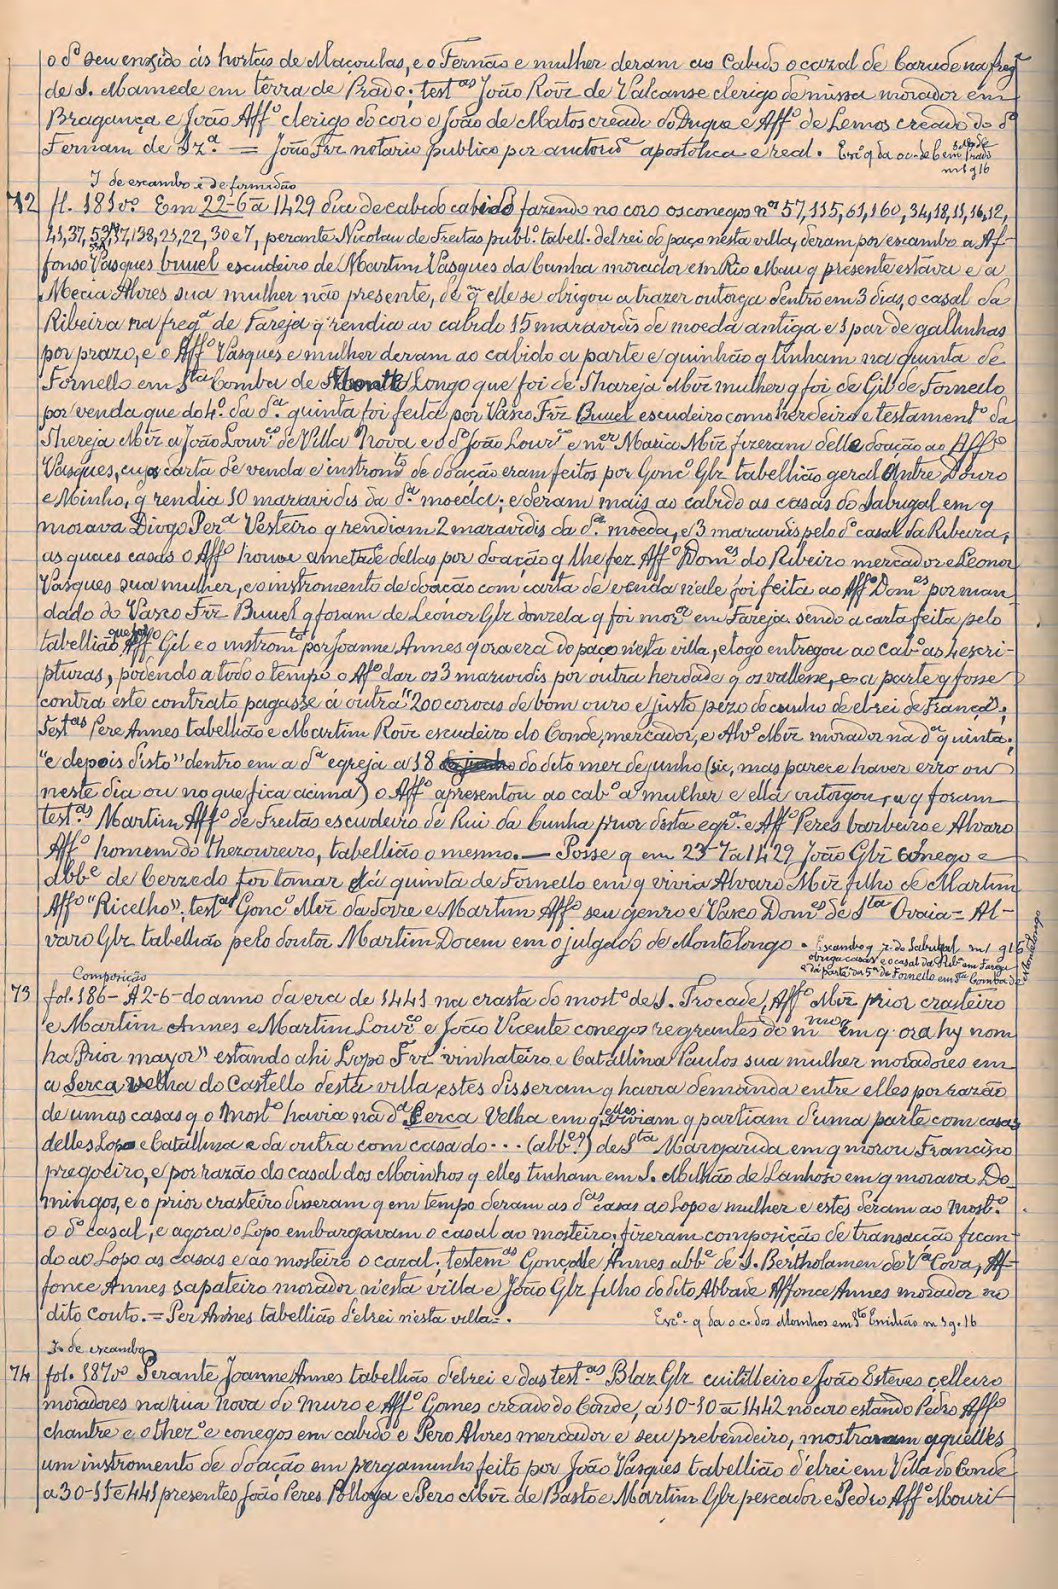 o dº seu enxido ás hortas de Maçoulas, e o Fernão e mulher deram ao Cabido o cazal de Barude na fregª
de S. Mamede em terra de Prado; testas João Roiz de Valcanse clerigo de missa morador em
Bragança e João Affº clerigo do coro e João de Matos creado do Duque e Affº de Lemos creado do dº
Fernam de Szª. = João Frz notario publico por autoride apostolica e real. Escª q da o c. de B em Prado
m 1 g 16
I de escambo e de formidão
72 fl. 181vº Em 22-6 a 1429 dia de cabido cabido fazendo no coro os conegos nos 57, 115, 61, 160, 34, 18, 11, 16, 12,
41, 37, 53, 17, 138, 23, 22, 30 e 7, perante Nicolau de Freitas publº. tabell. del rei do paço nesta villa, deram por escambo a Af-
fonso Vasques buuel escudeiro de Martim Vasques da Cunha morador em Rio Mau q presente estáva e a
Mecia Alvres sua mulher não presente, de qm elle se obrigou a trazer outorga dentro em 3 dias, o casal da
Ribeira na fregª de Fareja q rendia ao cabido 15 maravidis de moeda antiga e 1 par de galinhas
por prazo, e o Affº Vasques e mulher deram ao cabido a parte e quinhão q tinham na quinta de
Fornello em Sta Comba de Monte Longo que foi de Thareja Miz mulher q foi de Gil de Fornello
por venda que do 4º da dª. quinta foi feita por Vasco Frz Buuel escudeiro como herdeiro e testamentº da
Thereja Miz a João Lourço de Villa Nova e o dº João Lourço e mer Maria Miz fizeram delle doação ao Affº
Vasques, cuja carta de venda e instromto de doação eram feitos por Gonçº Glz tabellião geral Entre Douro
e Minho, q rendia 10 maravidis da dª. moeda; e deram mais ao cabido as casas do Sabugal em q
morava Diogo Perª Vesteiro q rendiam 2 maravidis da dª. moeda, e 3 maravidis pelo dº casal da Ribeira,
as quaes casas o Affº houve ametade dellas por doação q lhe fez Affº Domes do Ribeiro mercador e Leonor
Vasques sua mulher, e o instromento de doação com carta de venda n'ele foi feita ao Affº Domes por man-
dado do Vasco Frz Buuel q foram de Leonor Glz donzela q foi morª em Fareja sendo a carta feita pelo
tabellião que foi Affº Gil e o instromto por Joanne Annes q ora era do paço n'esta villa, e logo entregou ao cabº as 4 escri-
pturas, podendo a todo o tempo o Afº dar os 3 maravidis por outra herdade q os vallêsse, e a parte q fosse
contra este contrato pagasse á outra "200 coroas de bom ouro e justo pezo do cunho de el rei de França";
Testas Pere Annes tabellião e Martim Roiz escudeiro do Conde, mercador, e Alvº Miz morador na dª quinta;
"e depois disto" dentro em a dª egreja a 18 do dito mez de junho (sic, mas parece haver erro ou
neste dia ou no que fica acima) o Affº apresentou ao cabº a mulher e ella outorgou, a q foram
testas Martim Affº de Freitas escudeiro de Rui da Cunha prior desta egrª. e Affº Peres barbeiro e Alvaro
Affº homem do thezoureiro, tabellião o mesmo. — Posse q em 23-7 a 1429 João Glz conego e
abbe de Cerzedo foi tomar dá quinta de Fornello em q vivia Alvaro Miz filho de Martim
Affº "Ricelho"; testas Gonçº Miz da Torre e Martim Affº seu genro e Vasco Domes de Sta Ovaia = Al-
varo Glz tabellião pelo doutor Martim Docem em o julgado de Montelongo. Escambo q z. do Sabugal m 1 g 16
obriga casas e o casal da Ribª em Fareja
e dá parte da 5ta de Fornello em Sta Comba de
Montelongo
Composição
73 fol. 186 - A 2-6- do anno da era de 1441 na crasta do mostº de S. Trocade, Affº Miz prior crasteiro
e Martim Annes e Martim Lourço e João Vicente conegos regrantes do mmo "em q ora hy nom
ha Prior mayor" estando ahi Lopo Frz vinhateiro e Catallina Paulos sua mulher moradores em
a Serca velha do Castello desta villa, estes disseram q havia demanda entre elles por razão
de umas casas q o mostº havia na dª Cerca Velha em q elles viviam q partiam d'uma parte com casas
delles Lopo e Catallina e da outra com casa do ... (abbe?) de Sta Margarida em q morou Francisco
pregoeiro, e por razão do casal dos Moinhos q elles tinham em S. Milhão de Lanhoso em q morava Do-
mingos, e o prior crasteiro disseram q em tempo deram as das casas ao Lopo e mulher e estes deram ao mostº.
o dº casal, e agora o Lopo embargavam o casal ao mosteiro; fizeram composição de transacção fican-
do ao Lopo as casas e ao mosteiro o cazal; testemas Gonçalle Annes abbe de S. Bertholameu de Vª Cova, Af-
fonce Annes sapateiro morador n'esta villa e João Glz filho do dito Abbade Affonce Annes morador no
dito couto. = Per Annes tabellião d'elrei n'esta villa =. Escª. q da o c. dos Moinhos em Sto Emilião m 1 g. 16
I. de escambo
74 fol. 187vº Perante Joanne Annes tabellião d'elrei e das testas Blaz Glz cuitilleiro e João Esteves çelleiro
moradores na rua nova do muro e Affº Gomes creado do Conde, a 10-10 a 1442 no coro estando Pedro Affº
chantre e o thezº e conegos em cabido e Pero Alvres mercador e seu prebendeiro, mostraram aquelles
um instromento de doação em pergaminho feito por João Vasques tabellião d'elrei em Villa do Conde
a 30-11 e 441 presentes João Peres Pollaya e Pero Miz de Basto e Martim Glz pescador e Pedro Affº Mouri-